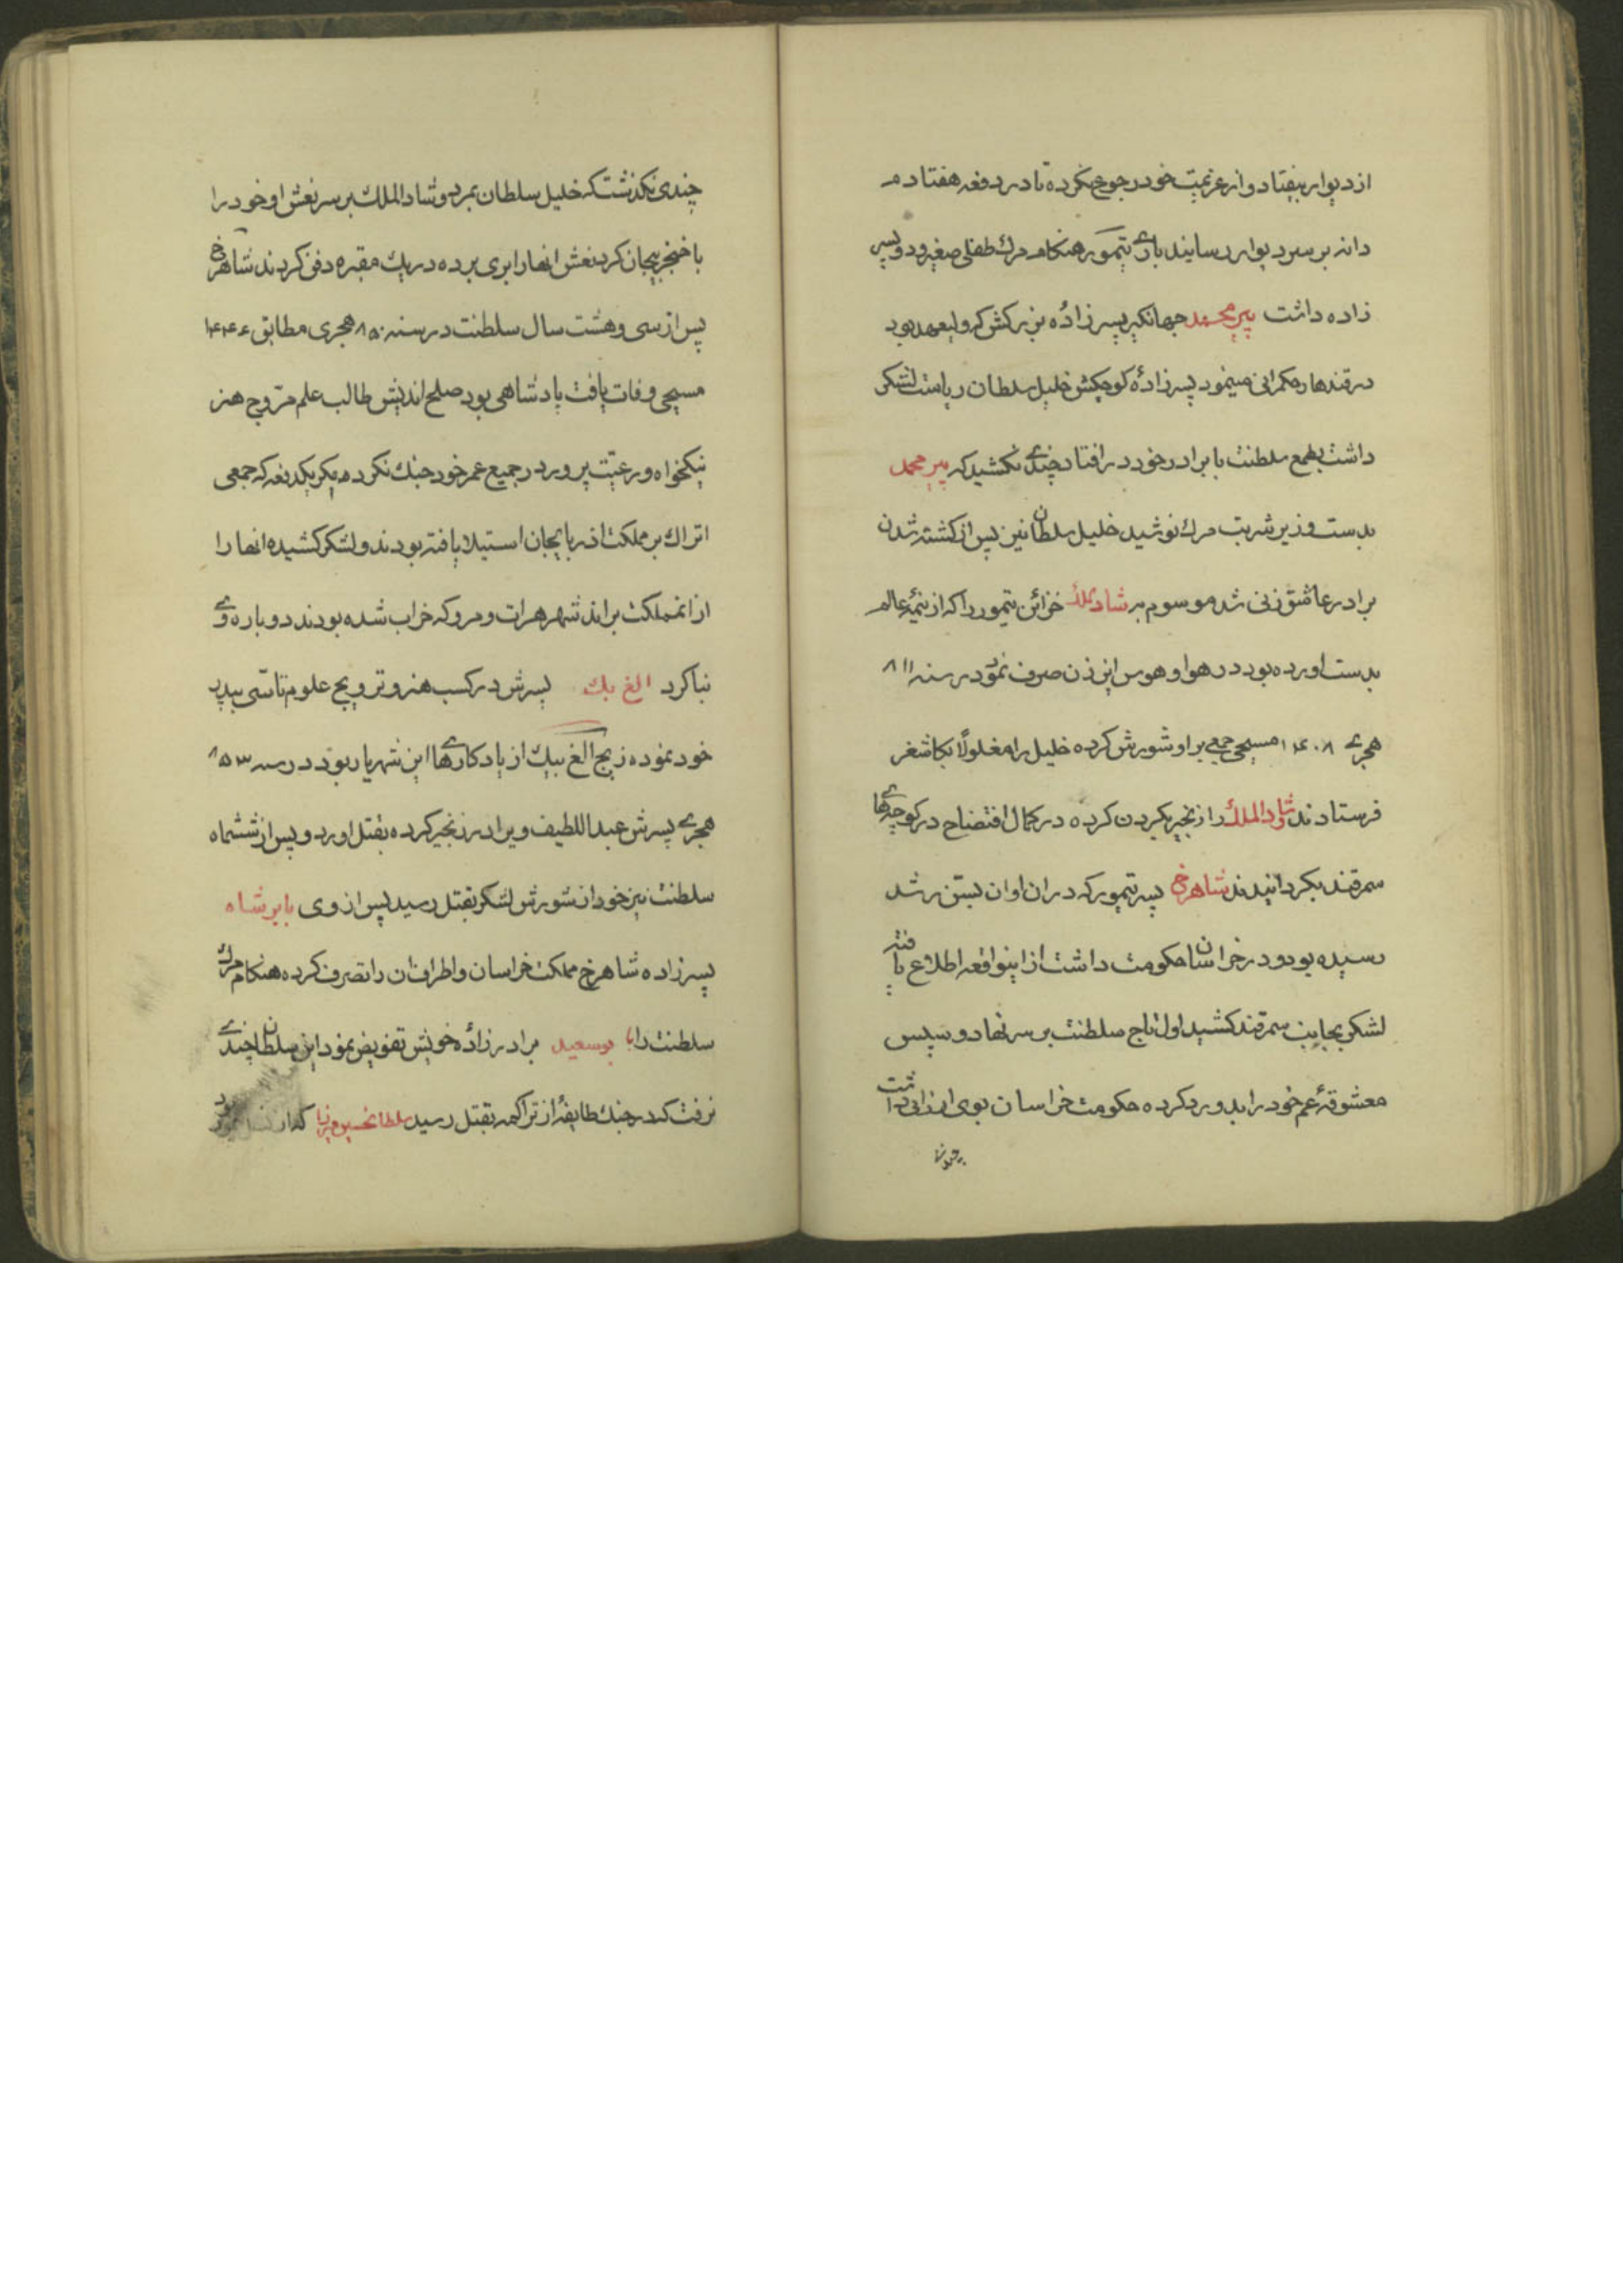 از دیوار بیفتاد و از عزیمت خود رجوع نکرده تا در دفعه هفتادم
دانه بر سر دیوار رسانید باری تیمور هنکام مرك طفلی صغیر و دو پسر
زاده داشت پیر محمد جهانکیر پسر زادهٔ بزرکش که ولیعهد بود
در قندهار حکمرانی مینمود پسر زادهٔ کوچکش خلیل سلطان ریاست لشکر
داشت بطمع سلطنت با برادر خود در افتاد چندی نکشید که پیر محمد
بدست وزیر شربت مرك نوشید خلیل سلطان نیز پس از کشته شدن
برادر عاشق زنی شد موسوم به شاد ملك خزائن تیمور را که از نیمهٔ عالم
بدست اورده بود در هوا و هوس این زن صرف نمود در سنه ۸۱۱
هجری ۱۴۰۸ مسیحی جمعی بر او شورش کرده خلیل را مغلولًا بکاشغر
فرستادند و شاد الملك را زنجیر بکردن کرده در کمال افتضاح در کوچه‌های
سمرقند بکردانیدند شاهرخ پسر تیمور که در ان اوان بسن رشد
رسیده بود و در خراسان حکومت داشت از اینواقعه اطلاع یافته
لشکر بجانب سمرقند کشید اول تاج سلطنت بر سر نهاد و سپس
معشوقهٔ عم خود را بدو رد کرده حکومت خراسان بوی ارزانی داشت
چندی نکذشت که خلیل سلطان بمرد و شاد الملك بر سر نعش او خود را
با خنجر بیجان کرد نعش انها را بری برده در یك مقبره دفن کردند شاهرخ
پس از سی و هشت سال سلطنت در سنه ۸۵۰ هجری مطابق ۱۴۴۶
مسیحی وفات یافت پادشاهی بود صلح اندیش طالب علم مروّج هنر
نیکخواه و رعیّت پرور در جمیع عمر خود جنك نکرد مکر یکدفعه که جمعی
اتراك بر مملکت اذربایجان استیلا یافته بودند و لشکر کشیده انها را
از انمملکت براند شهر هرات و مرو که خراب شده بودند دوباره وی
بنا کرد الغ بك پسرش در کسب هنر و ترویج علوم تاسّی به پدر
خود نموده زیج الغ بیك از یادکارهای این شهریار بود در سنه ۸۵۳
هجری پسرش عبد اللطیف ویرا در زنجیر کرده بقتل اورد و پس از ششماه
سلطنت نیز خود از شورش لشکر بقتل رسید پس از وی بابر شاه
پسر زاده شاهرخ مملکت خراسان و اطراف ان را تصرف کرده هنکام مرك
سلطنت را با بوسعید برادر زادهٔ خویش تفویض نمود این سلطان چندی
نرفت که در جنك طایفهٔ از تراکمه بقتل رسید سلطانحسین میرزا که از